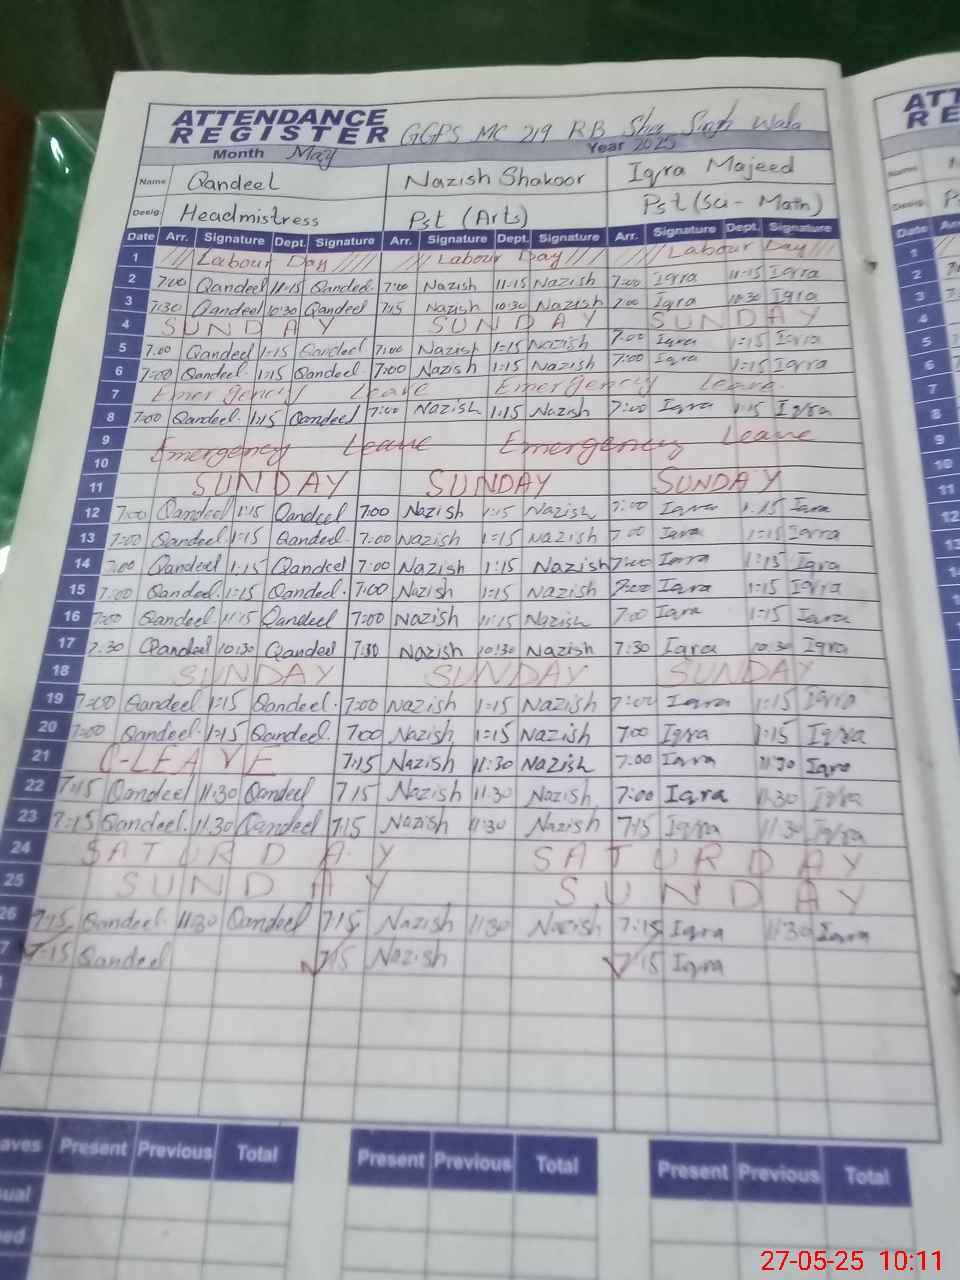 ATTENDANCE
REGISTER GGPS MC 219 RB Sher Singh Wala
Month May Year 2025
Name Qandeel Nazish Shakoor Iqra Majeed
Desig. Headmistress Pst (Arts) Pst (Sci - Math)
Date Arr. Signature Dept. Signature Arr. Signature Dept. Signature Arr. Signature Dept. Signature
1 Labour Day Labour Day Labour Day
2 7:00 Qandeel 11:15 Qandeel 7:00 Nazish 11:15 Nazish 7:00 Iqra 11:15 Iqra
3 7:30 Qandeel 10:30 Qandeel 7:15 Nazish 10:30 Nazish 7:00 Iqra 10:30 Iqra
4 SUNDAY SUNDAY SUNDAY
5 7:00 Qandeel 1:15 Qandeel 7:00 Nazish 1:15 Nazish 7:00 Iqra 1:15 Iqra
6 7:00 Qandeel 1:15 Qandeel 7:00 Nazish 1:15 Nazish 7:00 Iqra 1:15 Iqra
7 Emergency Leave Emergency Leave.
8 7:00 Qandeel 1:15 Qandeel 7:00 Nazish 1:15 Nazish 7:00 Iqra 1:15 Iqra
9 Emergency Leave Emergency Leave
10
11 SUNDAY SUNDAY SUNDAY
12 7:00 Qandeel 1:15 Qandeel 7:00 Nazish 1:15 Nazish 7:00 Iqra 1:15 Iqra
13 7:00 Qandeel 1:15 Qandeel. 7:00 Nazish 1:15 Nazish 7:00 Iqra 1:15 Iqra
14 7:00 Qandeel 1:15 Qandeel 7:00 Nazish 1:15 Nazish 7:00 Iqra 1:15 Iqra
15 7:00 Qandeel. 1:15 Qandeel. 7:00 Nazish 1:15 Nazish 7:00 Iqra 1:15 Iqra
16 7:00 Qandeel 11:15 Qandeel 7:00 Nazish 11:15 Nazish 7:00 Iqra 1:15 Iqra
17 7:30 Qandeel 10:30 Qandeel 7:30 Nazish 10:30 Nazish 7:30 Iqra 10:30 Iqra
18 SUNDAY SUNDAY SUNDAY
19 7:00 Qandeel. 1:15 Qandeel. 7:00 Nazish 1:15 Nazish 7:00 Iqra 1:15 Iqra
20 7:00 Qandeel. 1:15 Qandeel. 7:00 Nazish 1:15 Nazish 7:00 Iqra 1:15 Iqra
21 C-LEAVE 7:15 Nazish 11:30 Nazish 7:00 Iqra 11:30 Iqra
22 7:15 Qandeel 11:30 Qandeel 7:15 Nazish 11:30 Nazish 7:00 Iqra 11:30 Iqra
23 7:15 Qandeel. 11:30 Qandeel 7:15 Nazish 11:30 Nazish 7:15 Iqra 11:30 Iqra
24 SATURDAY SATURDAY
25 SUNDAY SUNDAY
26 7:15 Qandeel. 11:30 Qandeel 7:15 Nazish 11:30 Nazish 7:15 Iqra 11:30 Iqra
7 7:15 Qandeel 7:15 Nazish 7:15 Iqra
aves Present Previous Total Present Previous Total Present Previous Total
ual
ed
ATT
RE
Name
Desig.
Date
1
2
3
4
5
6
7
8
9
10
11
12
13
14
27-05-25 10:11